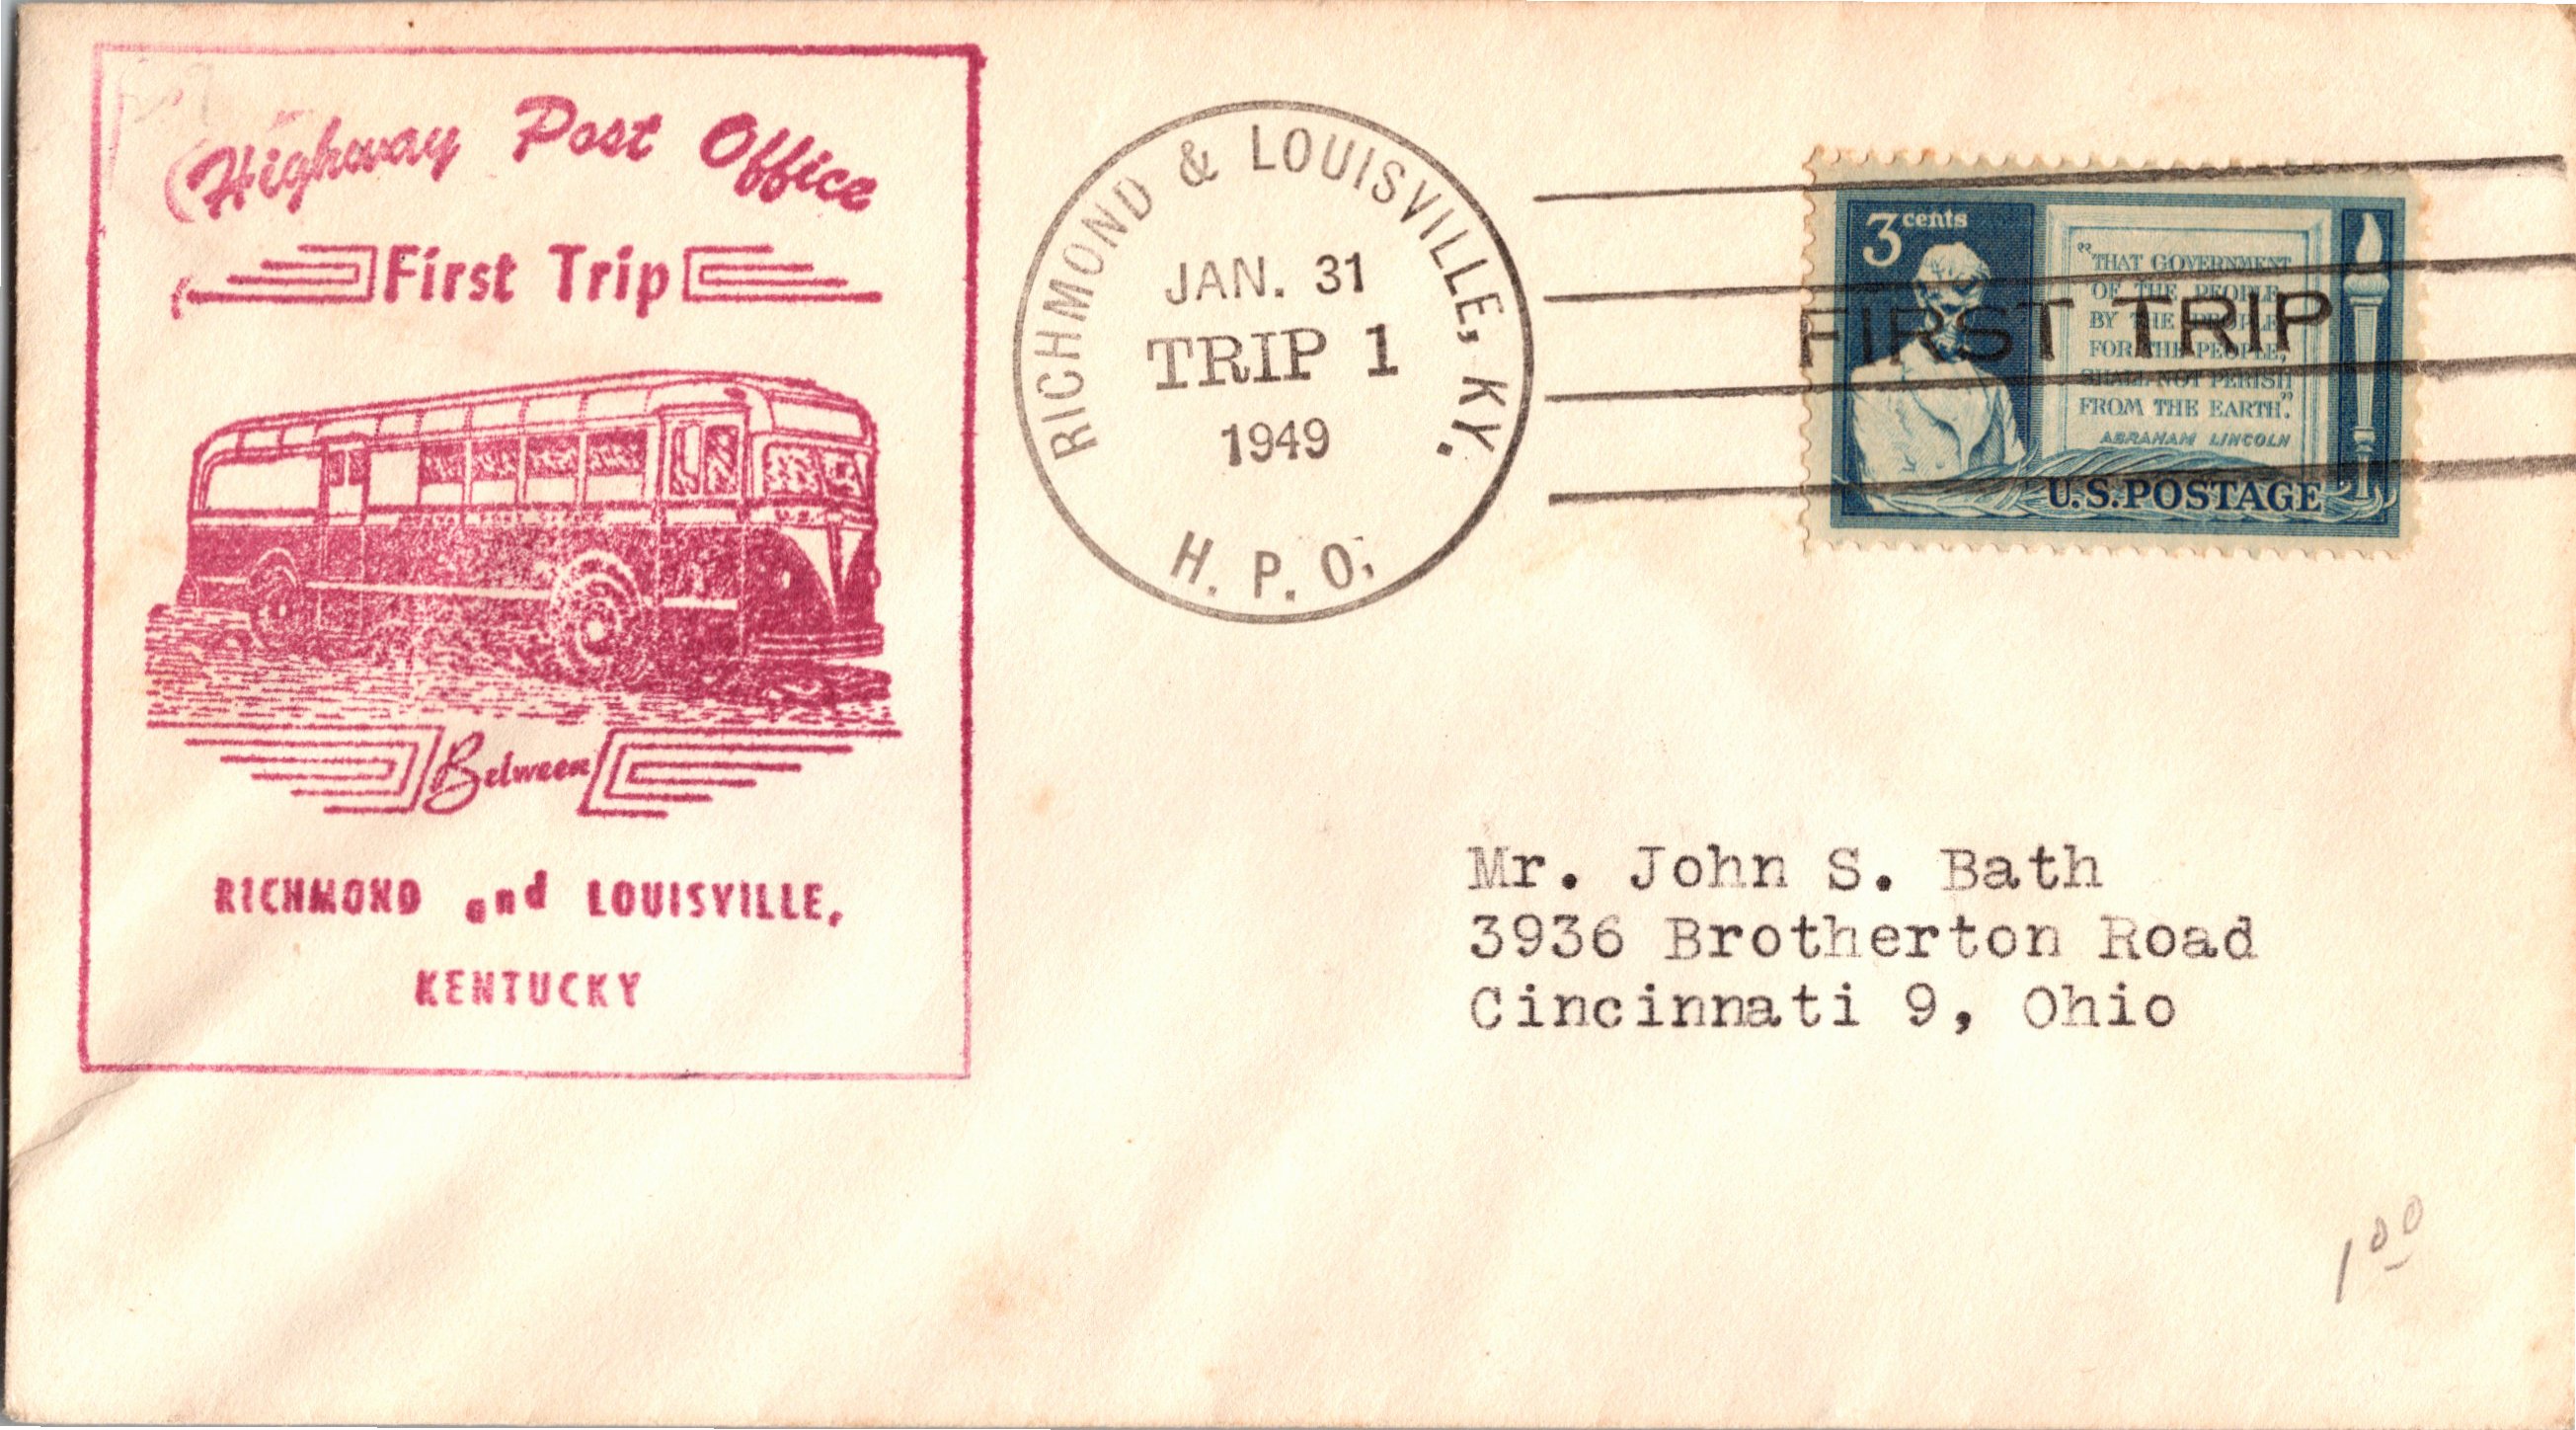 Highway Post Office
First Trip
Between
RICHMOND and LOUISVILLE,
KENTUCKY
RICHMOND & LOUISVILLE, KY.
JAN. 31
TRIP 1
1949
H. P. O.
FIRST TRIP
3 cents
"THAT GOVERNMENT
OF THE PEOPLE,
BY THE PEOPLE,
FOR THE PEOPLE,
SHALL NOT PERISH
FROM THE EARTH."
ABRAHAM LINCOLN
U.S. POSTAGE
Mr. John S. Bath
3936 Brotherton Road
Cincinnati 9, Ohio
1 00